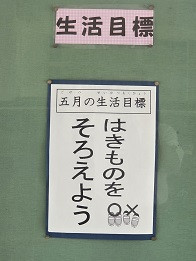 生活目標
五月の生活目標
はきものを
そろえよう